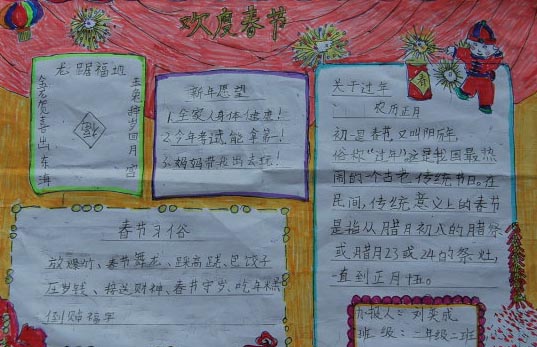 欢度春节
龙踞福地
金虎喜出东海
玉兔辞岁回月宫
新年愿望
1.全家人身体健康!
2.今年考试能拿第一!
3.妈妈带我出去玩!
关于过年
农历正月
初一是春节又叫阴历年,
俗称“过年”这是我国最热
闹的一个古老传统节日。在
民间,传统意义上的春节
是指从腊月初八的腊祭
或腊月23或24的祭灶,
一直到正月十五。
春节习俗
放爆竹、春节舞龙、踩高跷、包饺子
压岁钱、接送财神、春节守岁、吃年糕
倒贴福字
办报人:刘奕成
班级:二年级二班